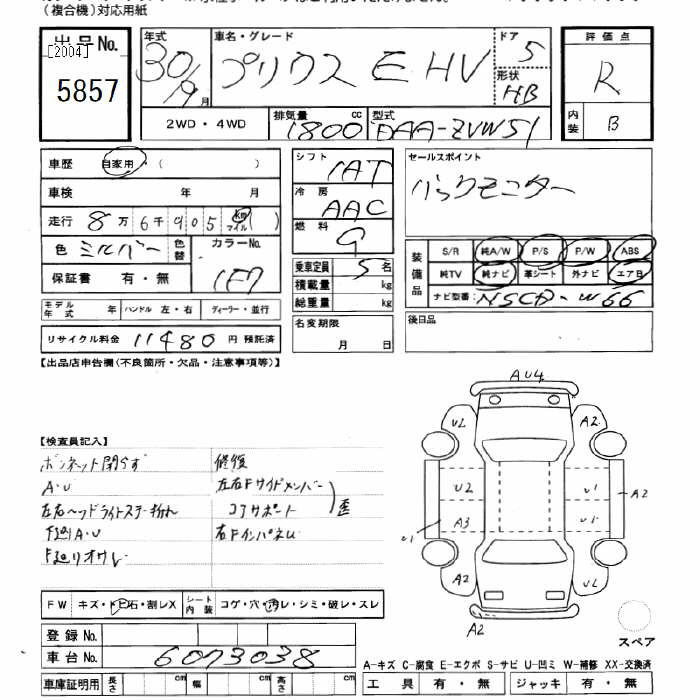 (複合機)対応用紙
出品No.
[2004]
5857
年式
30/9月
車名・グレード
プリウス E HV
ドア 5
形状 HB
評価点
R
内装 B
2WD・4WD
排気量 1800 cc
型式 DAA-ZVW51
車歴 自家用・( )
車検 年 月
走行 8万6千905 km マイル( )
色 シルバー 色替
カラーNo. 1F7
保証書 有・無
モデル年式 年 ハンドル 左・右 ディーラー・並行
リサイクル料金 11480円 預託済
シフト IAT
冷房 AAC
燃料 G
乗車定員 5名
積載量 kg
総重量 kg
名変期限
月 日
セールスポイント
バックモニター
装備品
S/R 純A/W P/S P/W ABS
純TV 純ナビ 革シート 外ナビ エアB
ナビ型番 NSCD-W66
後日品
【出品店申告欄(不良箇所・欠品・注意事項等)】
【検査員記入】
ボンネット閉らず
A・U
左右ヘッドライトステー折れ
F廻A・U
修復
左右Fサイドメンバー
コアサポート
歪
右Fインパネ
AU4
UL
A2
U2
A3
U1
U1
U1
A2
A2
UL
A2
スペア
FW キズ・トビ石・割レX
シート内装 コゲ・穴・汚レ・シミ・破レ・スレ
登録No.
車台No. 6073038
車庫証明用 長さ cm 幅 cm 高さ cm
A-キズ C-腐食 E-エクボ S-サビ U-凹ミ W-補修 XX-交換済
工具 有・無 ジャッキ 有・無